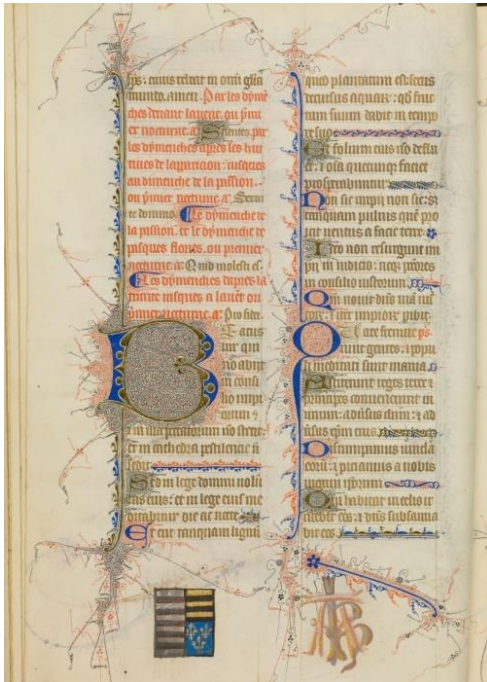 mundo. amen. Par les dyme
ches devant lavent. ou pmi
er nocturne. a. Servite. par
les dymenches apres les hui
tives de lapparicion. iusques
au dimenche de la passion.
ou pmier nocturne. a. Servi
te domino. Le dymenche de
la passion. et le dymenche de
pasques flories. ou premier
nocturne. a. Quid molesti es.
Les dymenches dapres la
trinite iusques a lavet ou
pmier nocturne. a. Pro fide.
Beatus
vir qui
no abiit
in consi
lio impi
orum &
in via peccatorum no stetit:
et in cathedra pestilencie n
sedit
Sed in lege domini volu
tas eius: et in lege eius me
ditabitur die ac nocte
Et erit tanquam lignu
quod plantatum est secus
decursus aquaru: qd fruc
tum suum dabit in tempo
re suo
Et folium eius no deflu
et: & oia quecumq faciet
prosperabuntur
Non sic impii non sic: s;
tanquam pulvis que pro
icit ventus a facie terre
Ideo non resurgunt im
pii in iudicio: neq pctores
in consilio iustorum
Qm novit dns via ius
toru: & iter impiorum pibit
Quare fremuerunt ps.
gentes: & popli
meditati sunt inania
Astiterunt reges terre &
principes convenerunt in
unum: adversus dnm: & ad
versus xpm eius
Disrumpamus vincla
eorum: & piciamus a nobis
iugum ipsorum
Qui habitat in celis ir
ridebit eos: & dns subsanna
bit eos